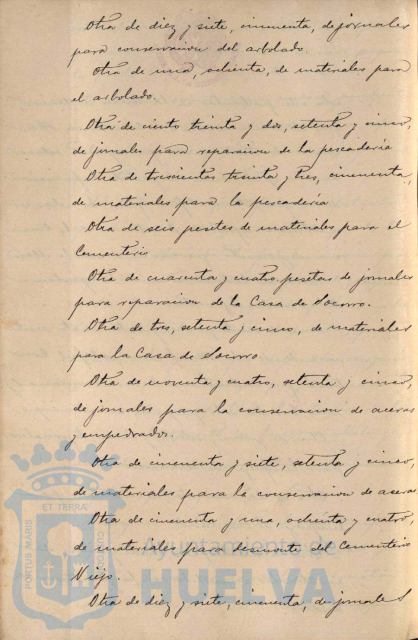 Otra de diez y siete, cincuenta, de jornales
para conservacion del arbolado.
Otra de una, ochenta, de materiales para
el arbolado.
Otra de ciento treinta y dos, setenta y cinco,
de jornales para reparacion de la pescadería
Otra de trescientas treinta y tres, cincuenta,
de materiales para la pescadería
Otra de seis pesetas de materiales para el
Cementerio
Otra de cuarenta y cuatro pesetas de jornales
para reparacion de la Casa de Socorro.
Otra de tres, setenta y cinco, de materiales
para la Casa de Socorro
Otra de noventa y cuatro, setenta y cinco,
de jornales para la conservacion de aceras
y empedrados.
Otra de cincuenta y siete, setenta y cinco,
de materiales para la conservacion de aceras
Otra de cincuenta y una, ochenta y cuatro
de materiales para desmonte del Cementerio
Viejo.
Otra de diez y siete, cincuenta, de jornales
PORTUS MARIS
ET TERRÆ
CUSTODIA
Ayuntamiento de
HUELVA